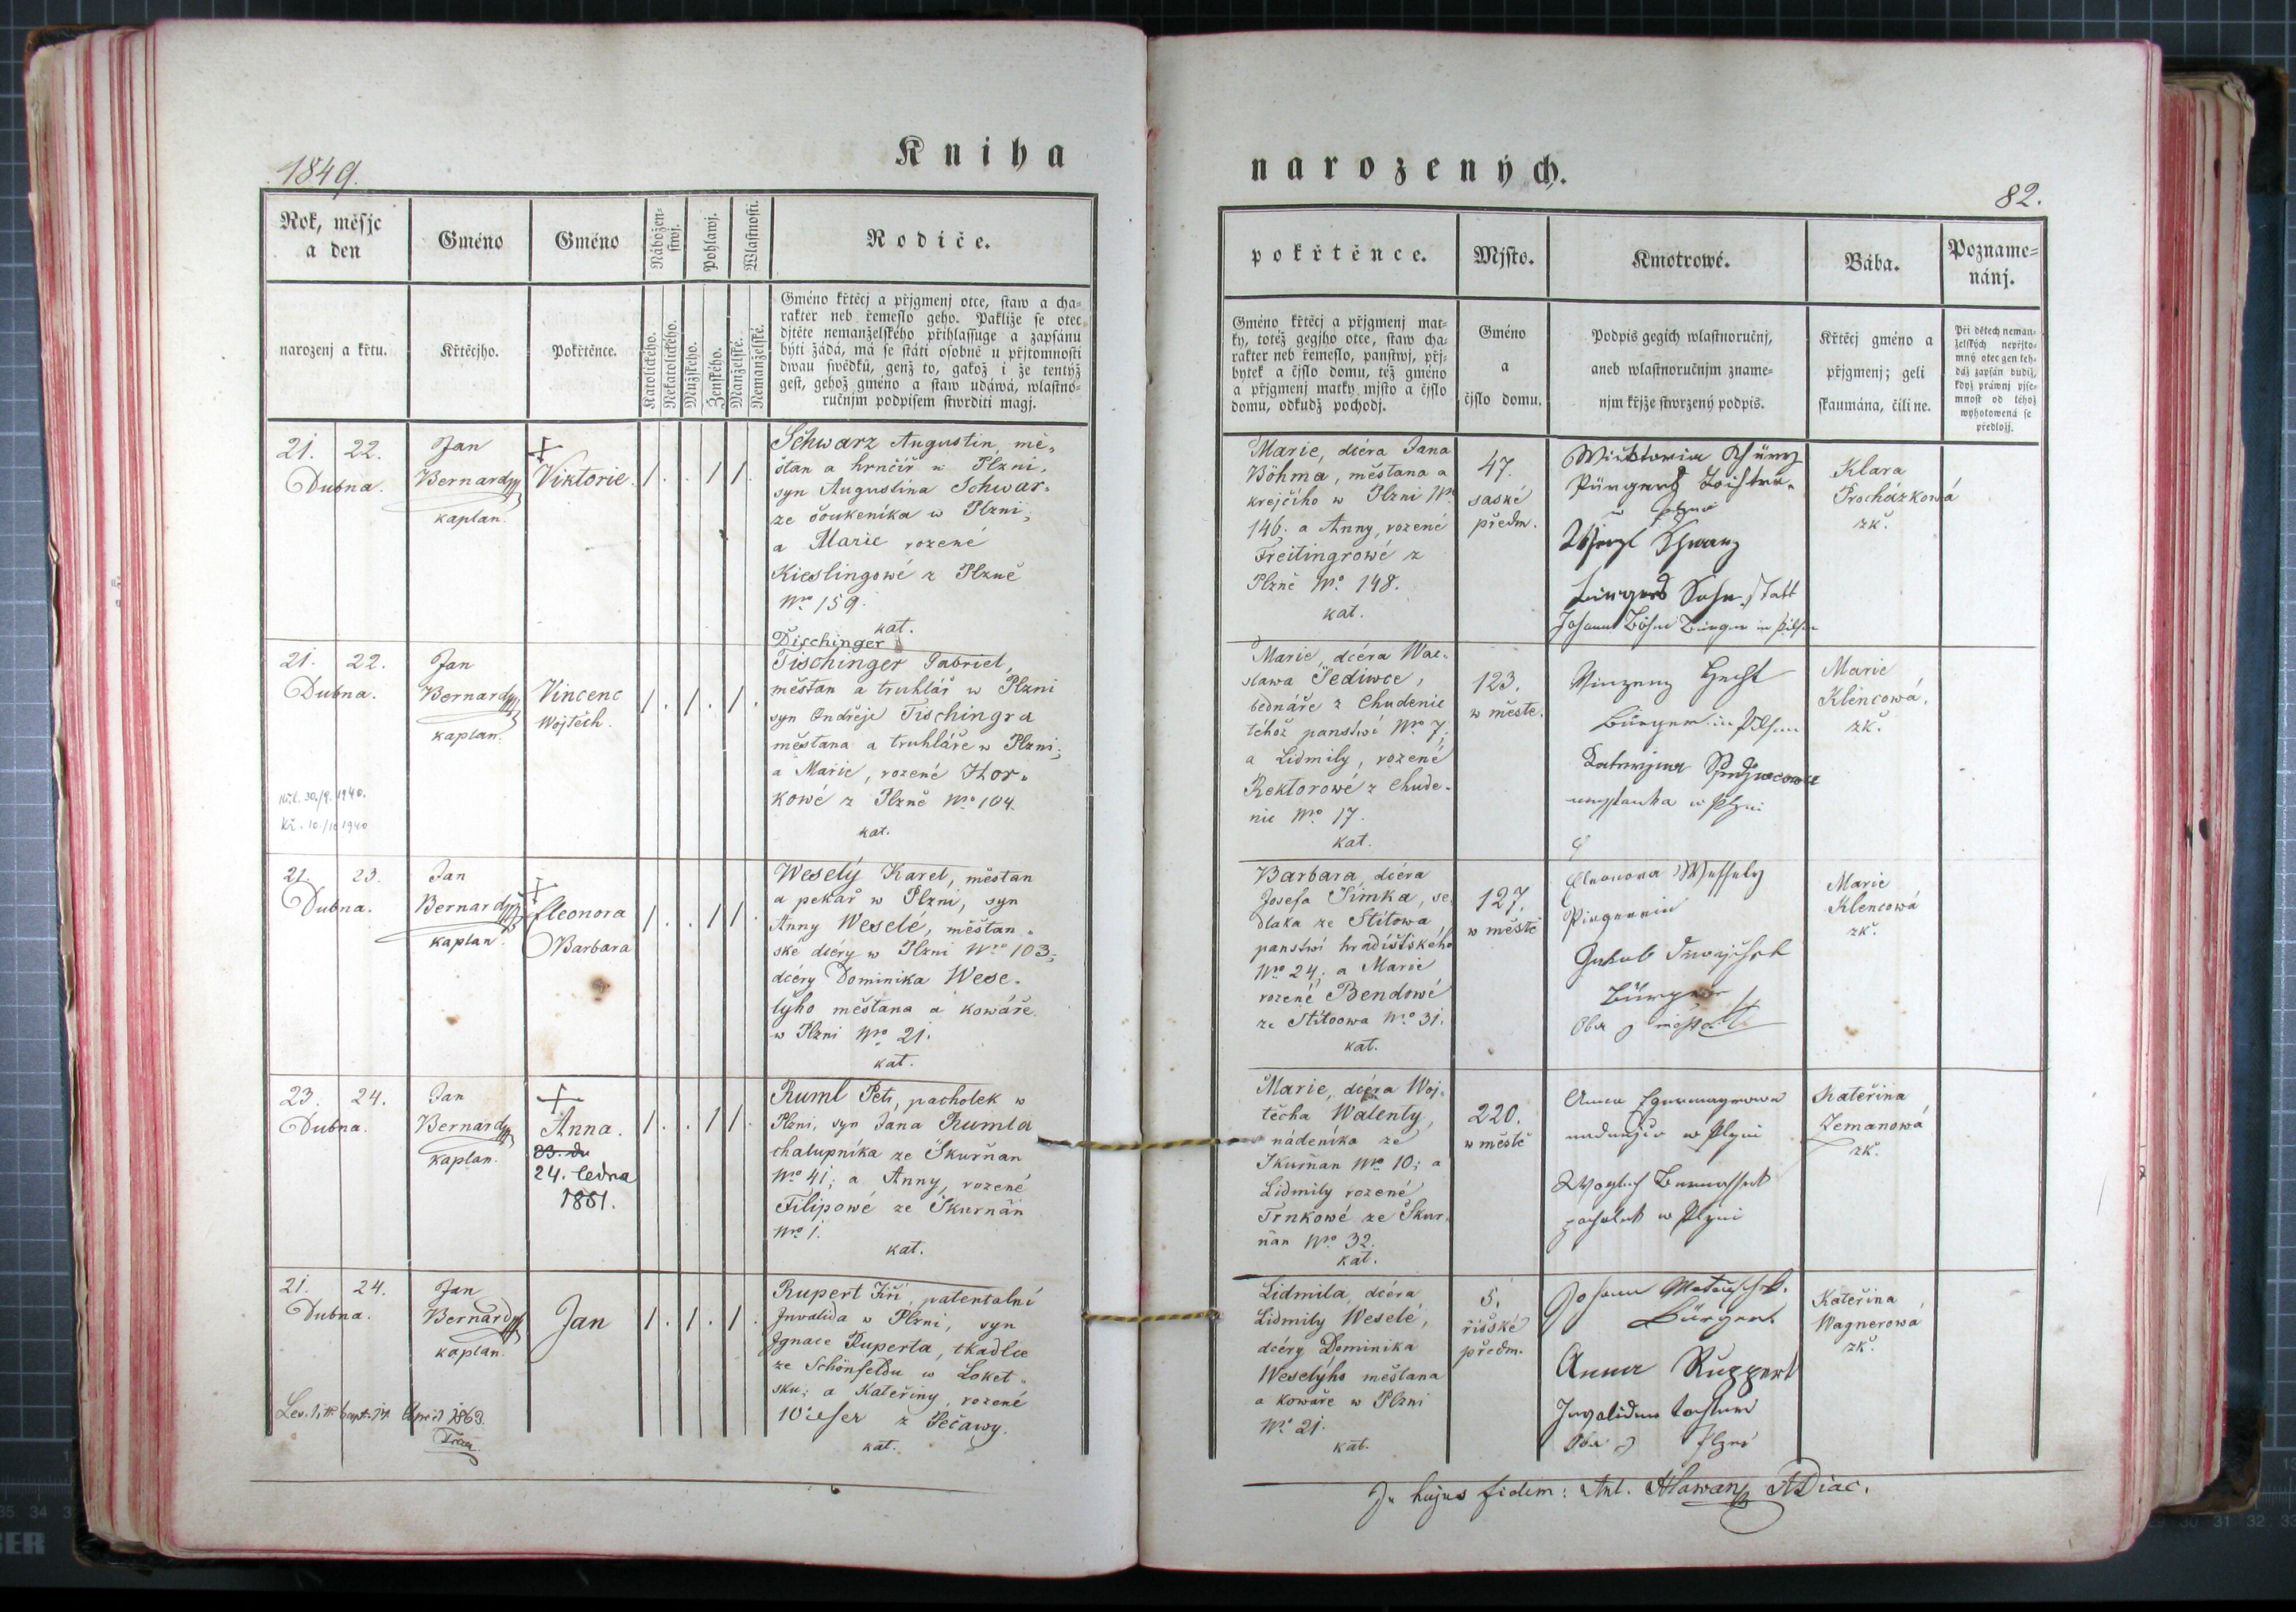 1849.
Kniha
Rok, měsjc
a den
Gméno
Gméno
Nábožen-
stwj.
Pohlawj.
Wlastnosti.
Rodiče.
narozenj a křtu.
Křtěcjho.
Pokřtěnce.
Katolického.
Nekatolického.
Mužského.
Ženského.
Manželské.
Nemanželské.
Gméno křtěcj a přjgmenj otce, staw a cha-
rakter neb řemeslo geho. Pakliže se otec
djtěte nemanželského přihlassuge a zapsánu
býti žádá, má se státi osobně u přjtomnosti
dwau swědků, genž to, gakož i že tentýž
gest, gehož gméno a staw udáwá, wlastno-
ručnjm podpisem stwrditi magj.
21. 22.
Dubna.
Jan
Bernard
kaplan.
Viktorie.
1 . . 1 1 .
Schwarz Augustin, mě-
šťan a hrnčíř w Plzni,
syn Augustina Schwar-
ze soukeníka w Plzni;
a Marie rozené
Kieslingowé z Plzně
Nro 159.
kat.
21. 22.
Dubna.
Jan
Bernard
kaplan.
Vincenc
Wojtěch.
30./9. 1940.
10./10 1940
1 . 1 . 1 .
Dischinger
Tischinger Gabriel,
měšťan a truhlář w Plzni
syn Ondřeje Tischingra
měšťana a truhláře w Plzni;
a Marie, rozené Hor-
kowé z Plzně Nro 104.
kat.
21. 23.
Dubna.
Jan
Bernard
kaplan.
Eleonora
Barbara
1 . . 1 1 .
Weselý Karel, měšťan
a pekař w Plzni, syn
Anny Weselé, měšťan-
ské dcéry w Plzni Nro 103;
dcéry Dominika Wese-
lýho měšťana a kowáře
w Plzni Nro 21.
kat.
23. 24.
Dubna.
Jan
Bernard
kaplan.
Anna.
24. ledna
1881.
1 . . 1 1 .
Ruml Petr, pacholek w
Plzni, syn Jana Rumla
chalupníka ze Škurňan
Nro 41; a Anny, rozené
Filipowé ze Škurňan
Nro 1.
kat.
21. 24.
Dubna.
Jan
Bernard
kaplan.
Jan
1 . 1 . 1 .
Rupert Jiří, patentalní
Invalida w Plzni, syn
Ignace Ruperta, tkadlce
ze Schönfeldu w Loket-
sku; a Kateřiny, rozené
z Pečawy.
kat.
April 1863.
narozených.
82.
pokřtěnce.
Mjsto.
Kmotrowé.
Bába.
Pozname-
nánj.
Gméno křtěcj a přjgmenj mat-
ky, totéž gegjho otce, staw cha-
rakter neb řemeslo, panstwj, přj-
bytek a čjslo domu, též gméno
a přjgmenj matky mjsto a čjslo
domu, odkudž pochodj.
Gméno
a
čjslo domu.
Podpis gegich wlastnoručnj,
aneb wlastnoručnjm zname-
njm křjže stwrzený podpis.
Křtěcj gméno a
přjgmenj; geli
skaumána, čili ne.
Při dětech neman-
želských nepřjto-
mný otec gen teh-
dáž zapsán budiž,
když práwnj pjse-
mnost od téhož
wyhotowená se
předložj.
Marie, dcéra Jana
Böhma, měšťana a
krejčího w Plzni Nro
146. a Anny, rozené
Freitingrowé z
Plzně Nro 148.
kat.
47.
saské
předm.
Bürgers Sohn, statt
Johann Böhm Bürger in Pilsen
Klara
Procházkowá
zk.
Marie, dcéra Wac-
slawa Šediwce,
bednáře z Chudenic
téhož panství Nro 7;
a Lidmily, rozené
Rektorowé z Chude-
nic Nro 17.
kat.
123.
w městě.
Vinzenz Hecht
Bürger in Pilsen
w Plzni
Marie
Klencowá.
zk.
Barbara, dcéra
Josefa Šimka, se-
dláka ze Štítowa
panství hradištského
Nro 24; a Marie
rozené Bendowé
ze Štítowa Nro 31.
kat.
127.
w městě
Eleonora Wessely
Jakub
Bürger
Oba z města
Marie
Klencowá
zk.
Marie, dcéra Woj-
těcha Walenty,
nádeníka ze
Skurňan Nro 10; a
Lidmily rozené
Trnkowé ze Škur-
ňan Nro 32.
kat.
220.
w městě
Anna
w Plzni
pacholek w Plzni
Kateřina
Zemanowá
zk.
Lidmila, dcéra
Lidmily Weselé,
dcéry Dominika
Weselýho měšťana
a kowáře w Plzni
Nro 21.
kat.
5.
říšské
předm.
Johann
Bürger
Anna Ruppert
Invaliden Tochter
Oba z Plzně
Kateřina
Wagnerowá
zk.
In hujus fidem: Ant. Hlawan ADiac.